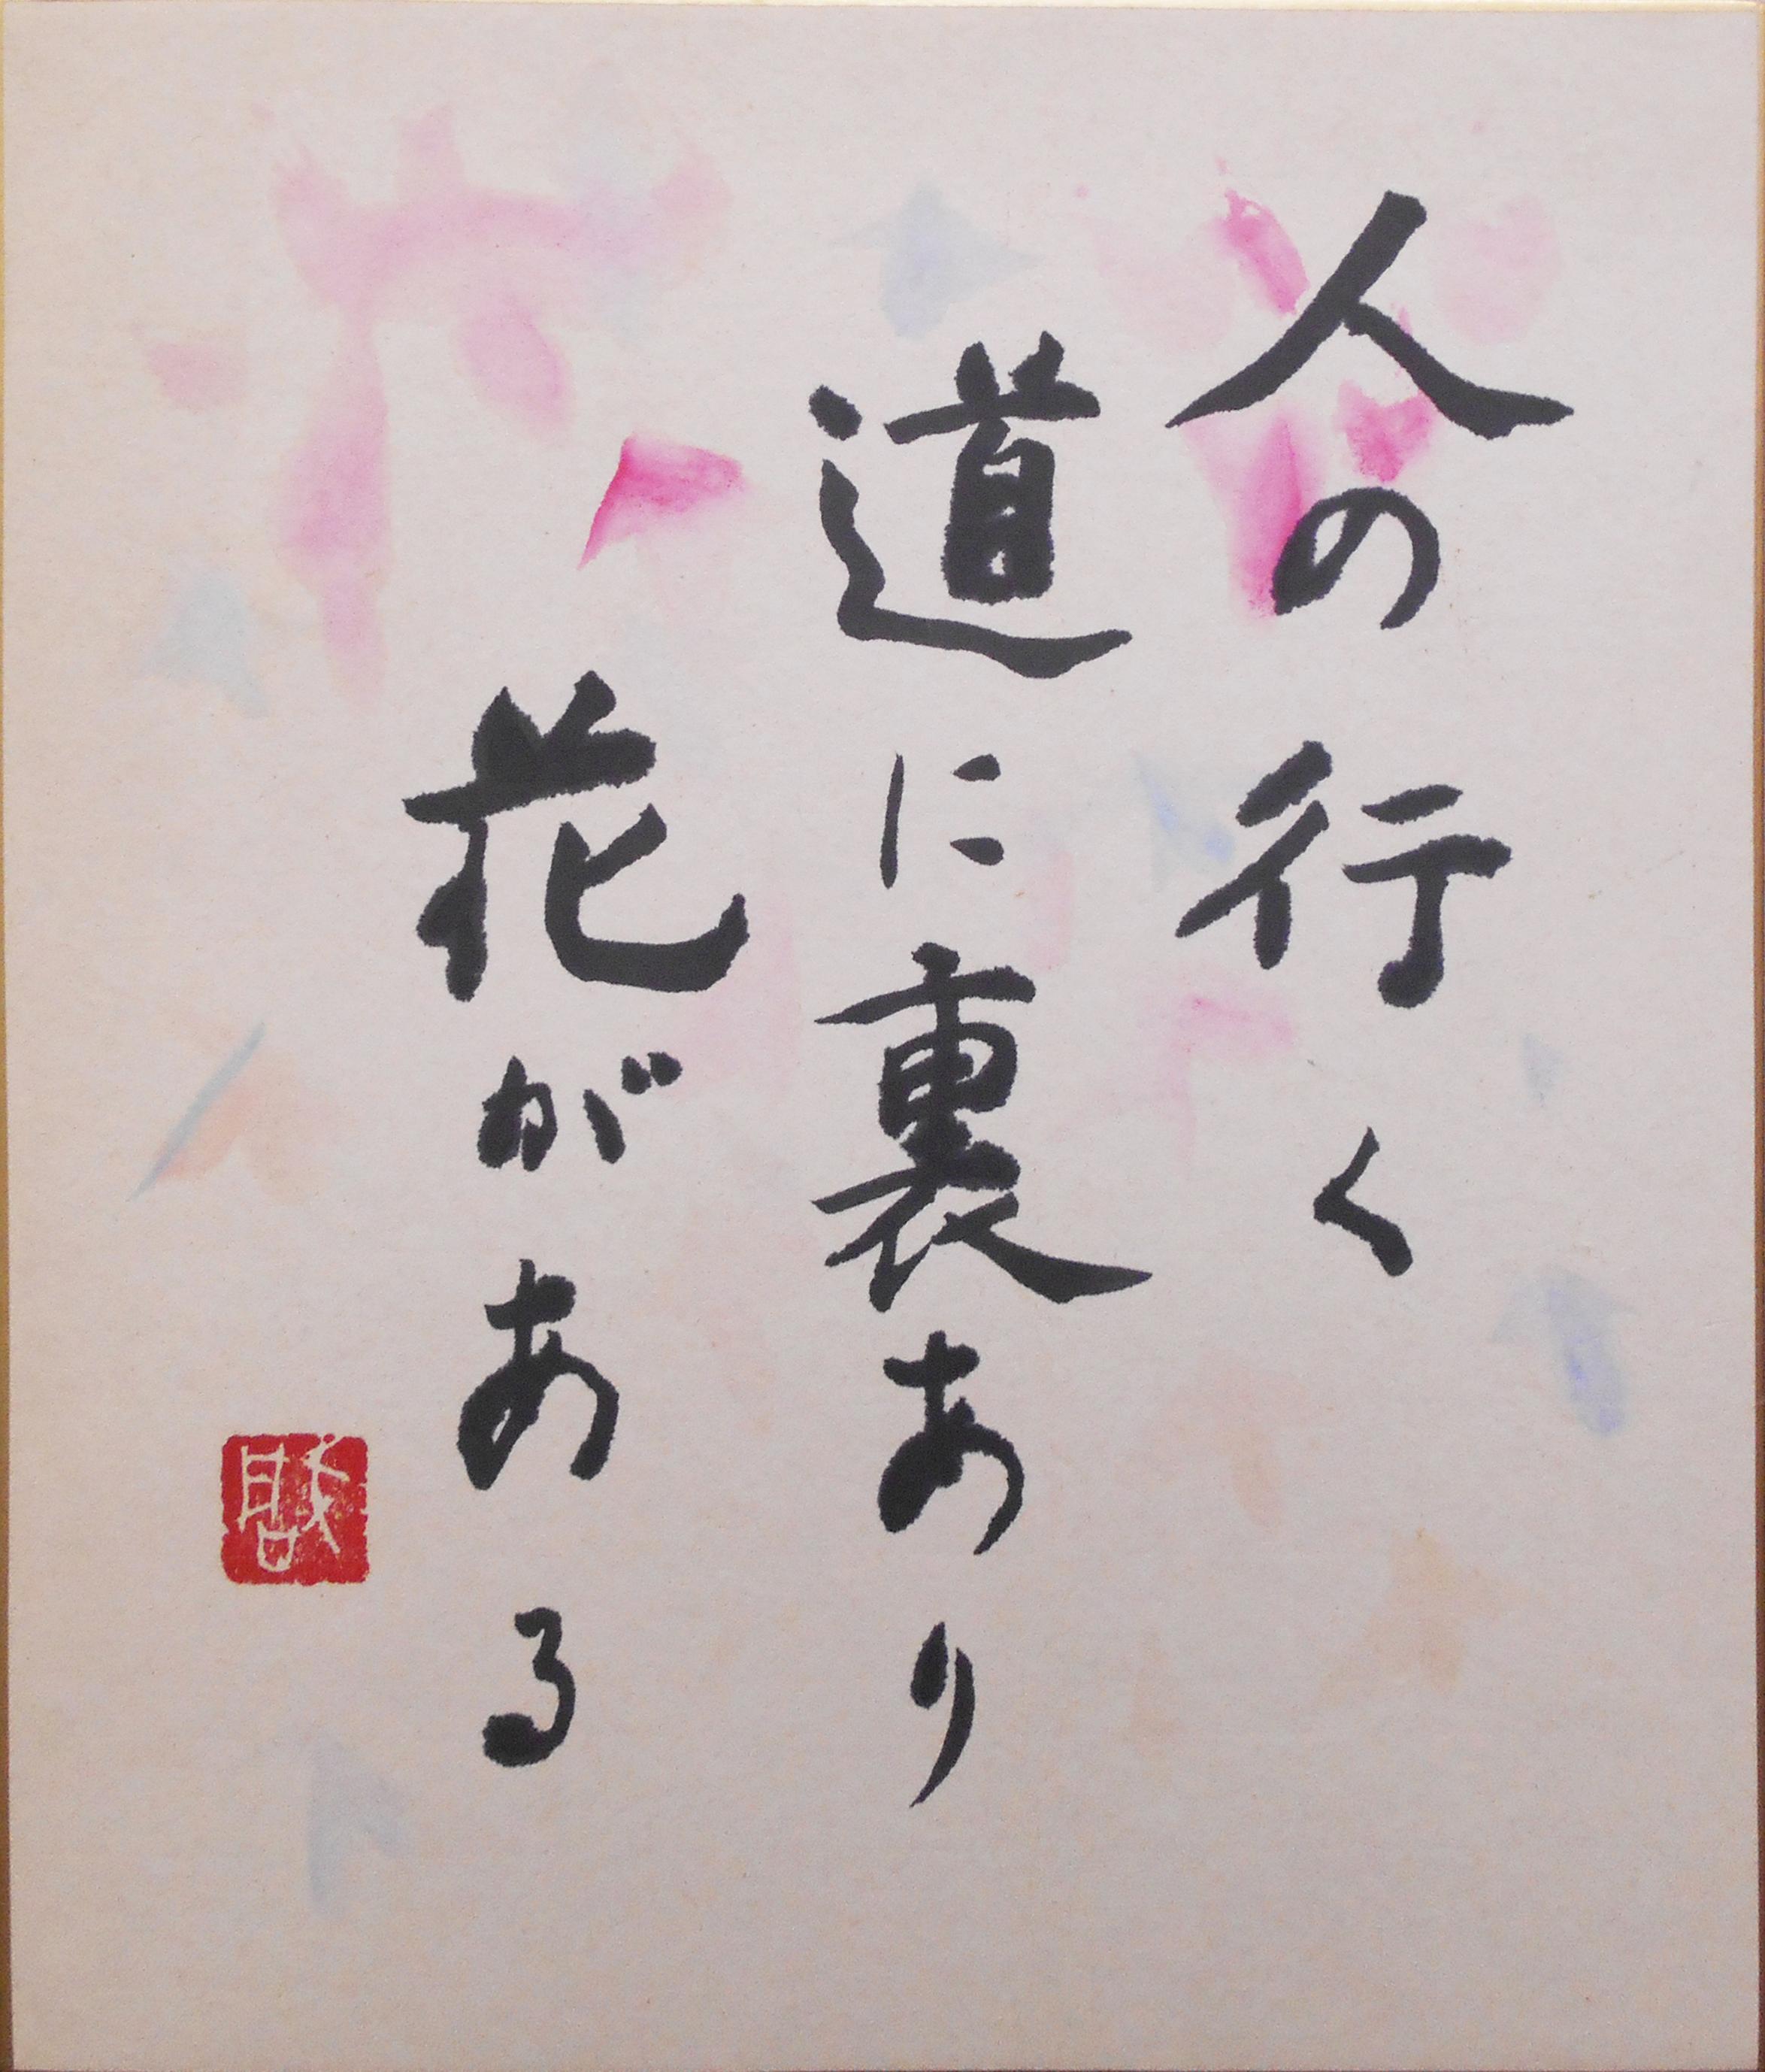 人の行く
道に裏あり
花がある